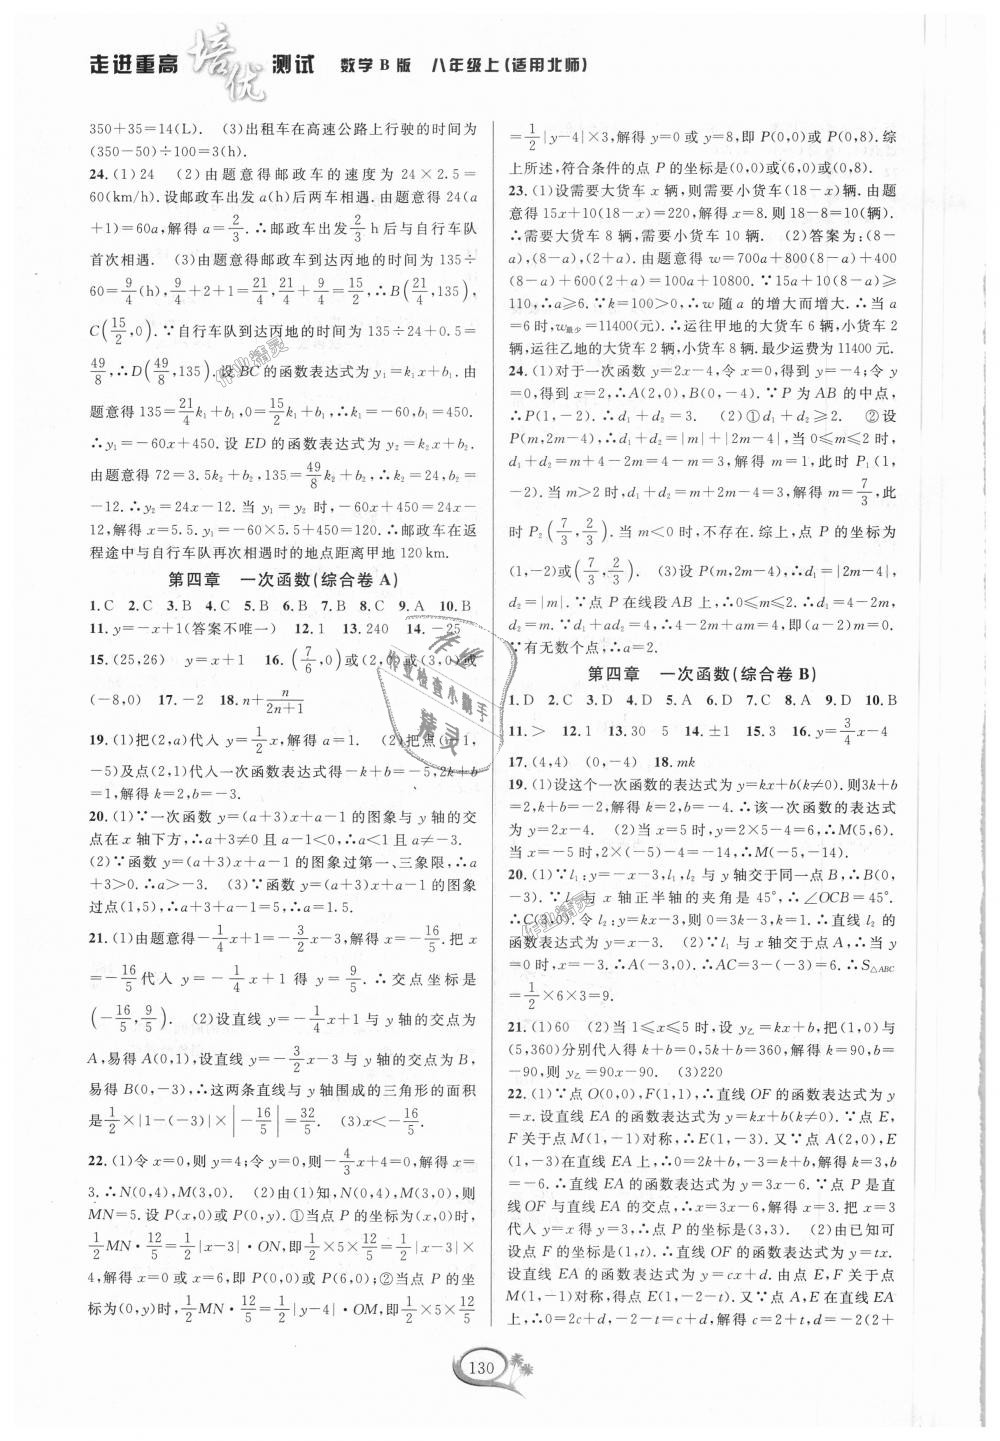 走进重高 培优 测试 数学 B 版 八年级上(适用北师)
350+35=14(L). (3)出租车在高速公路上行驶的时间为
(350-50)÷100=3(h).
24. (1)24 (2)由题意得邮政车的速度为 24×2.5=
60(km/h). 设邮政车出发 a(h)后两车相遇. 由题意得 24(a
+1)=60a,解得 a=2/3. ∴邮政车出发 2/3 h 后与自行车队
首次相遇. (3)由题意得邮政车到达丙地的时间为 135÷
60=9/4(h),9/4+2+1=21/4,21/4+9/4=15/2,∴B(21/4,135),
C(15/2,0). ∵自行车队到达丙地的时间为 135÷24+0.5=
49/8,∴D(49/8,135). 设 BC 的函数表达式为 y₁=k₁x+b₁. 由
题意得 135=21/4k₁+b₁,0=15/2k₁+b₁,∴k₁=-60,b₁=450.
∴y₁=-60x+450. 设 ED 的函数表达式为 y₂=k₂x+b₂.
由题意得 72=3.5k₂+b₂,135=49/8k₂+b₂,∴k₂=24,b₂=
-12. ∴y₂=24x-12. 当 y₁=y₂ 时,-60x+450=24x-
12,解得 x=5.5. y₁=-60×5.5+450=120. ∴邮政车在返
程途中与自行车队再次相遇时的地点距离甲地 120 km.
第四章 一次函数(综合卷 A)
1. C 2. C 3. B 4. C 5. B 6. B 7. B 8. C 9. A 10. B
11. y=-x+1(答案不唯一) 12. 1 13. 240 14. -25
15. (25,26) y=x+1 16. (7/6,0)或(2,0)或(3,0)或
(-8,0) 17. -2 18. n+n/(2n+1)
19. (1)把(2,a)代入 y=1/2x,解得 a=1. (2)把点(-1,
-5)及点(2,1)代入一次函数表达式得-k+b=-5,2k+b
=1,解得 k=2,b=-3.
20. (1)∵一次函数 y=(a+3)x+a-1 的图象与 y 轴的交
点在 x 轴下方,∴a+3≠0 且 a-1<0,∴a<1 且 a≠-3.
(2)∵函数 y=(a+3)x+a-1 的图象过第一、三象限,∴a
+3>0. ∴a>-3. (3)∵函数 y=(a+3)x+a-1 的图象
过点(1,5),∴a+3+a-1=5,∴a=1.5.
21. (1)由题意得-1/4x+1=-3/2x-3,解得 x=-16/5. 把 x
=-16/5代入 y=-1/4x+1 得 y=9/5. ∴交点坐标是
(-16/5,9/5). (2)设直线 y=-1/4x+1 与 y 轴的交点为
A,易得 A(0,1),设直线 y=-3/2x-3 与 y 轴的交点为 B,
易得 B(0,-3),∴这两条直线与 y 轴围成的三角形的面积
是1/2×|1-(-3)|×|-16/5|=32/5. (3)x<-16/5.
22. (1)令 x=0,则 y=4;令 y=0,则-4/3x+4=0,解得 x=
3. ∴N(0,4),M(3,0). (2)由(1)知,N(0,4),M(3,0),则
MN=5. 设 P(x,0)或 P(0,y). ①当点 P 的坐标为(x,0)时,
1/2MN·12/5=1/2|x-3|·ON,即1/2×5×12/5=1/2|x-3|×
4,解得 x=0 或 x=6,即 P(0,0)或 P(6,0);②当点 P 的坐
标为(0,y)时,1/2MN·12/5=1/2|y-4|·OM,即1/2×5×12/5
=1/2|y-4|×3,解得 y=0 或 y=8,即 P(0,0)或 P(0,8). 综
上所述,符合条件的点 P 的坐标是(0,0)或(6,0)或(0,8).
23. (1)设需要大货车 x 辆,则需要小货车(18-x)辆. 由题
意得 15x+10(18-x)=220,解得 x=8. 则 18-8=10(辆).
∴需要大货车 8 辆,需要小货车 10 辆. (2)答案为:(8-
a),(8-a),(2+a). 由题意得 w=700a+800(8-a)+400
(8-a)+600(2+a)=100a+10800. ∵15a+10(8-a)≥
110,∴a≥6. ∵k=100>0,∴w 随 a 的增大而增大. ∴当 a
=6 时,w最少=11400(元). ∴运往甲地的大货车 6 辆,小货车 2
辆,运往乙地的大货车 2 辆,小货车 8 辆. 最少运费为 11400 元.
24. (1)对于一次函数 y=2x-4,令 x=0,得到 y=-4;令 y
=0,得到 x=2,∴A(2,0),B(0,-4). ∵P 为 AB 的中点,
∴P(1,-2). ∴d₁+d₂=3. (2)①d₁+d₂≥2. ②设
P(m,2m-4),∴d₁+d₂=|m|+|2m-4|,当 0≤m≤2 时,
d₁+d₂=m+4-2m=4-m=3,解得 m=1,此时 P₁(1,
-2). 当 m>2 时,d₁+d₂=m+2m-4=3,解得 m=7/3,此
时 P₂(7/3,2/3). 当 m<0 时,不存在. 综上,点 P 的坐标为
(1,-2)或(7/3,2/3). (3)设 P(m,2m-4),∴d₁=|2m-4|,
d₂=|m|. ∵点 P 在线段 AB 上,∴0≤m≤2. ∴d₁=4-2m,
d₂=m. ∵d₁+ad₂=4,∴4-2m+am=4,即(a-2)m=0.
∵有无数个点,∴a=2.
第四章 一次函数(综合卷 B)
1. D 2. C 3. D 4. D 5. A 6. D 7. C 8. A 9. D 10. B
11. > 12. 1 13. 30 5 14. ±1 15. 3 16. y=3/4x-4
17. (4,4) (0,-4) 18. mk
19. (1)设这个一次函数的表达式为 y=kx+b(k≠0). 则3k+b
=2,k+b=-2,解得 k=2,b=-4. ∴该一次函数的表达式
为 y=2x-4. (2)当 x=5 时,y=2×5-4=6,∴M(5,6).
当 x=-5 时,2×(-5)-4=-14. ∴M(-5,-14).
20. (1)∵l₁:y=-x-3,l₁,l₂ 与 y 轴交于同一点 B,∴B(0,
-3). ∵l₂ 与 x 轴正半轴的夹角是 45°,∴∠OCB=45°.
∴C(3,0). 令 l₂:y=kx-3,则 0=3k-3,∴k=1. ∴直线 l₂ 的
函数表达式为 y=x-3. (2)∵l₁ 与 x 轴交于点 A,∴当 y
=0 时,x=-3. ∴A(-3,0). ∴AC=3-(-3)=6. ∴S△ABC
=1/2×6×3=9.
21. (1)60 (2)当 1≤x≤5 时,设 y乙=kx+b,把(1,0)与
(5,360)分别代入得 k+b=0,5k+b=360,解得 k=90,b=
-90,则 y乙=90x-90. (3)220
22. (1)∵点 O(0,0),F(1,1),∴直线 OF 的函数表达式为 y
=x. 设直线 EA 的函数表达式为 y=kx+b(k≠0). ∵点 E,
F 关于点 M(1,-1)对称,∴E(1,-3). 又∵点 A(2,0),E
(1,-3)在直线 EA 上,∴0=2k+b,-3=k+b,解得 k=3,b
=-6. ∴直线 EA 的函数表达式为 y=3x-6. ∵点 P 是直
线 OF 与直线 EA 的交点,∴x=3x-6,解得 x=3. 把 x=3
代入 y=x 得 y=3,∴点 P 的坐标是(3,3). (2)由已知可
设点 F 的坐标是(1,t). ∴直线 OF 的函数表达式为 y=tx.
设直线 EA 的函数表达式为 y=cx+d. 由点 E,F 关于点
M(1,-1)对称,得点 E(1,-2-t). 又∵点 A,E 在直线 EA
上,∴0=2c+d,-2-t=c+d,解得 c=2+t,d=-2(2+
130
作业精灵
作业精灵
作业检查小帮手
精灵